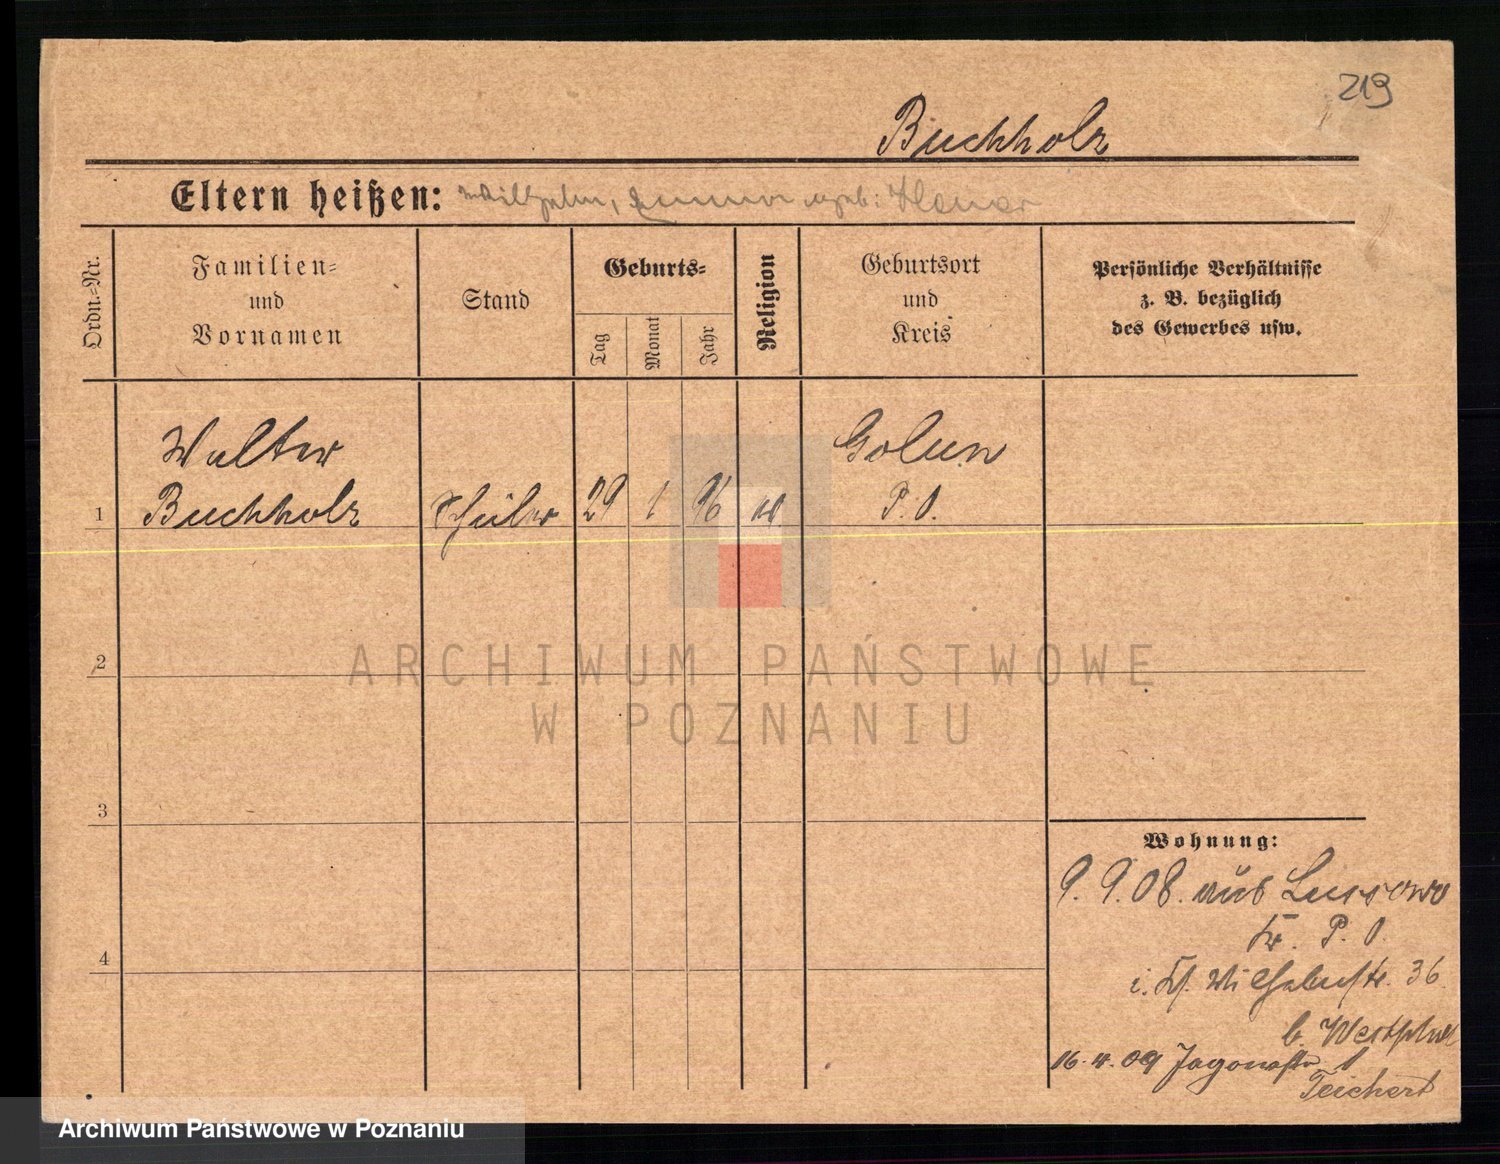 219
Buchholz
Eltern heißen: Wilhelm, Emma geb:
Ordn.-Nr.
Familien-
und
Vornamen
Stand
Geburts-
Tag
Monat
Jahr
Religion
Geburtsort
und
Kreis
Persönliche Verhältnisse
z. B. bezüglich
des Gewerbes usw.
Walter
Buchholz
1
Schüler
29
1
96
Golun
P. O.
2
3
4
Wohnung:
9. 9. 08. aus Lussowo
Kr. P. O.
i. Kf. Wilhelmstr. 36.
b. Westphal
16.4.09 Jagowstr 1
Teichert
ARCHIWUM PAŃSTWOWE
W POZNANIU
Archiwum Państwowe w Poznaniu